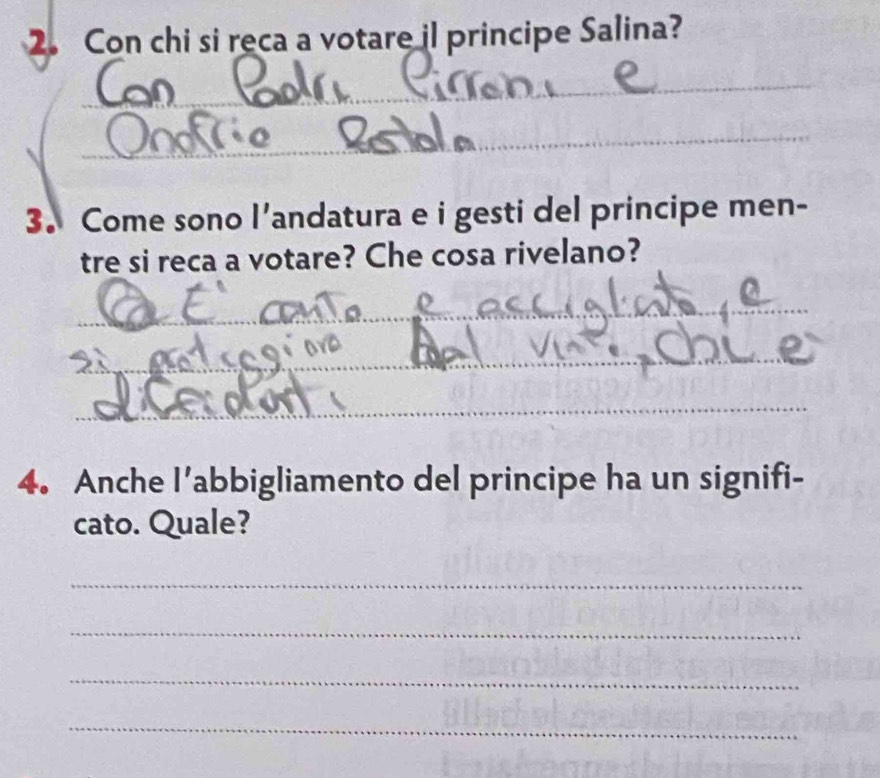 2. Con chi si reca a votare il principe Salina?
Con Padri Pirroni e
Onofrio Rotolo
3. Come sono l'andatura e i gesti del principe men-
tre si reca a votare? Che cosa rivelano?
E' cauto e accigliato, e
si proteggiova dal vinto, chi e
4. Anche l'abbigliamento del principe ha un signifi-
cato. Quale?